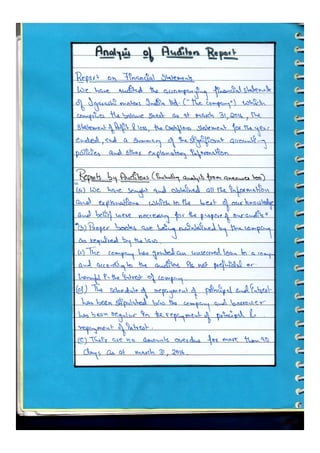 Analysis of Auditors Report
Report on Financial Statements
We have audited the accompanying financial statements
of motors India ltd. ("The company") which
comprises the balance sheet as at march 31, 2016, the
Statement of Profit & loss, the Cashflows Statement for the year
ended, and a summary of the significant accounting
policies and other explanatory Information
Reports by Auditors (Including analysis from annexures too)
(a) We have sought and obtained all the Information
and explanations which to the best of our knowledge
and belief were necessary for the purpose of our audit
(b) Proper books are being maintained by the company
as required by the law.
(c) The company has granted an unsecured loan to a
and according to the auditors its not prejudicial or
harmful to the Interest of company
(d) The schedule of repayment of principal and interest
has been stipulated b/w the company and borrower
has been regular in the repayment of principal &
repayment of Interest.
(e) There are no amounts overdue for more than 90
days as at march 31, 2016.